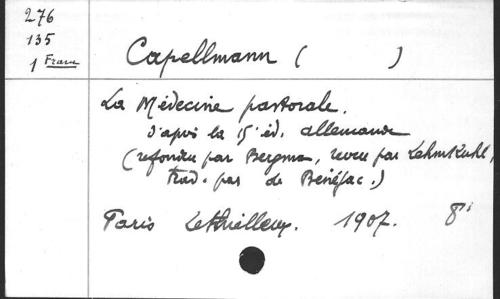 276
135
1 Franc
Capellmann ( )
La Médecine pastorale.
d'après la 15e éd. allemande
(refondue par Bergman, revue par Lehmkuhl,
trad. par de Bénéjac.)
Paris Lethielleux. 1907. 8°